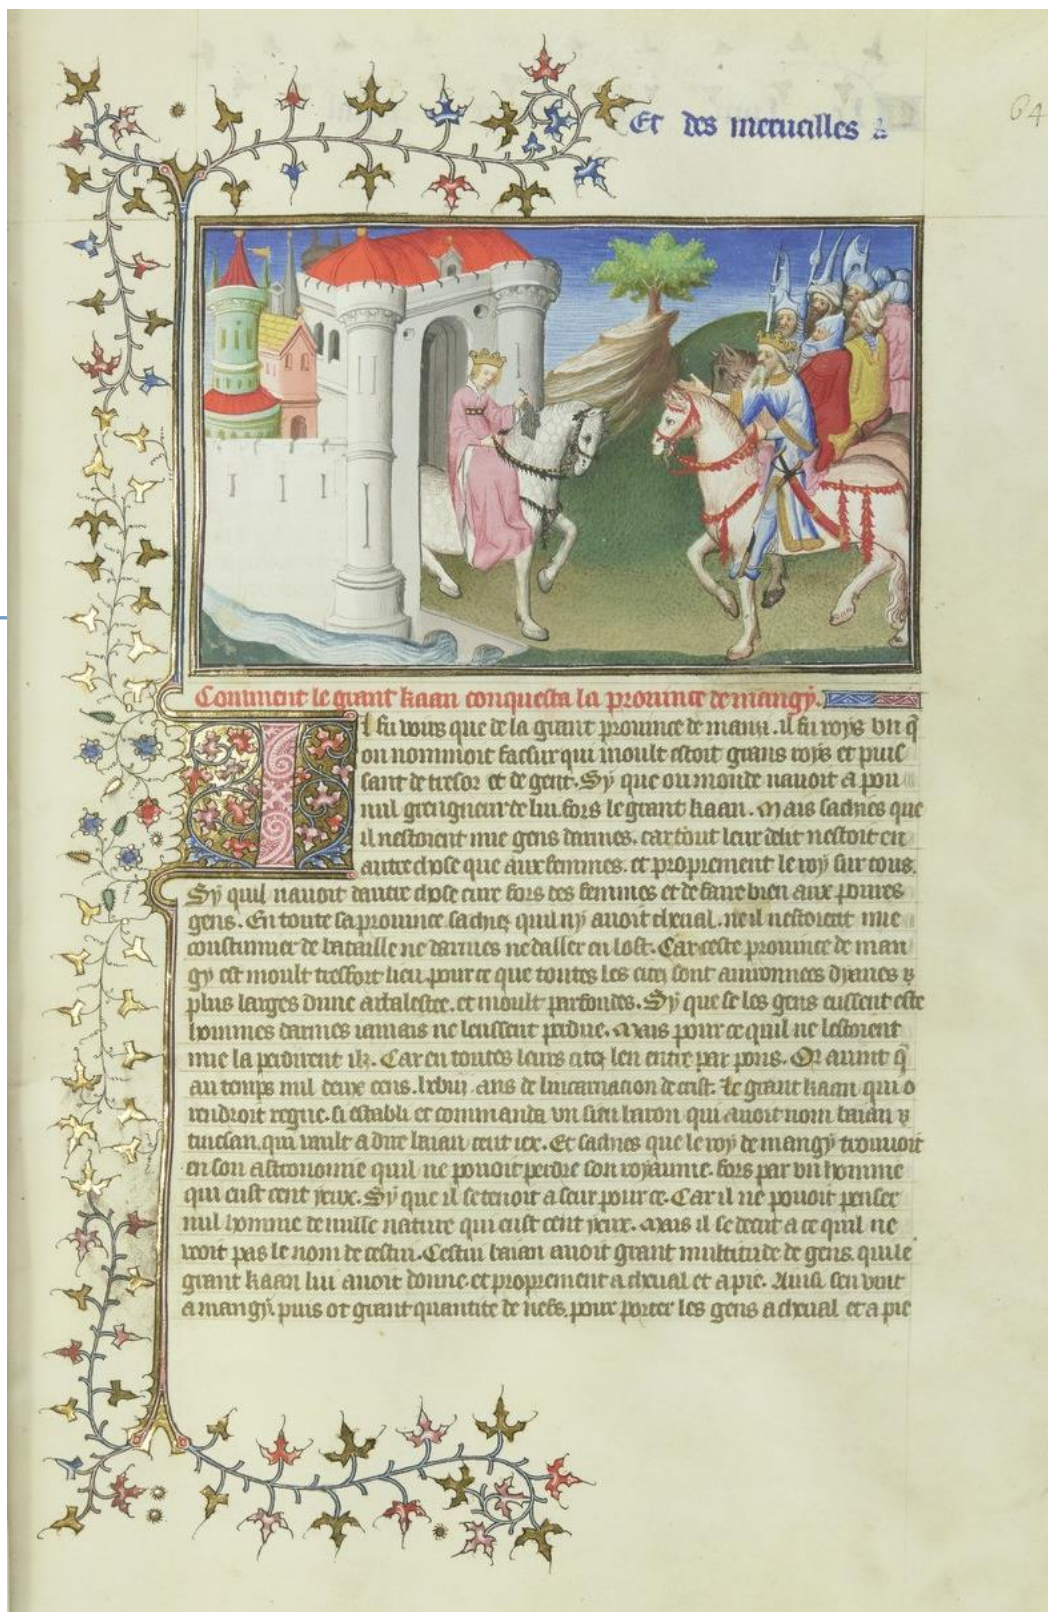 Et des merueilles
64
Comment le grant kaan conquesta la prouince de mangy.
Il fu voirs que de la grant prouince de manzi. il fu roys vn q̃
on nommoit facfur qui moult estoit grans roys et puis
sant de tresor et de gent. Sy que ou monde nauoit a pou
nul greigneur de lui fors le grant kaan. Mais sachies que
il nestoient mie gens darmes. car tout leur delit nestoit en
autre chose que aux femmes. et proprement le roy sur tous.
Sy quil nauoit dautre chose cure fors des femmes et de faire bien aux poures
gens. En toute sa prouince sachiez quil ny auoit cheual. ne il nestoient mie
coustumier de bataille ne darmes ne daller en lost. Car ceste prouince de man
gy est moult tresfort lieu pour ce que toutes les citez sont auironnees dyaues
plus larges dune arbalestre. et moult parfondes. Sy que se les gens eussent este
hommes darmes iamais ne leussent perdue. Mais pour ce quil ne lestoient
mie la perdirent ilz. Car en toutes leurs citez len entre par pons. Or auint q̃
au temps mil deux cens. lxviij. ans de lincarnacion de crist. le grant kaan qui o
rendroit regne. si establi et commanda vn sien baron qui auoit nom baian
cincsan. qui vault a dire baian cent iex. Et sachies que le roy de mangy trouuoit
en son astronomie quil ne pouoit perdre son royaume. fors par vn homme
qui eust cent yeux. Sy que il se tenoit a seur pour ce. Car il ne pouoit penser
nul homme de nulle nature qui eust cent yeux. Mais il se deceut a ce quil ne
veoit pas le nom de cestui. Cestui baian auoit grant multitude de gens. que le
grant kaan lui auoit donne. et proprement a cheual et a pie. Ainsi sen vint
a mangy. puis ot grant quantite de nefs. pour porter les gens a cheual et a pie